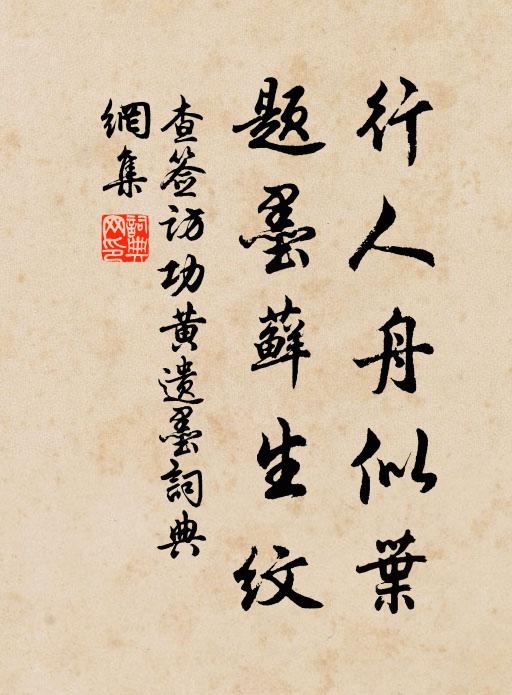 行人舟似葉
題墨蘚生紋
查簽訪功黄遺墨詞典
網集
詞典
网印